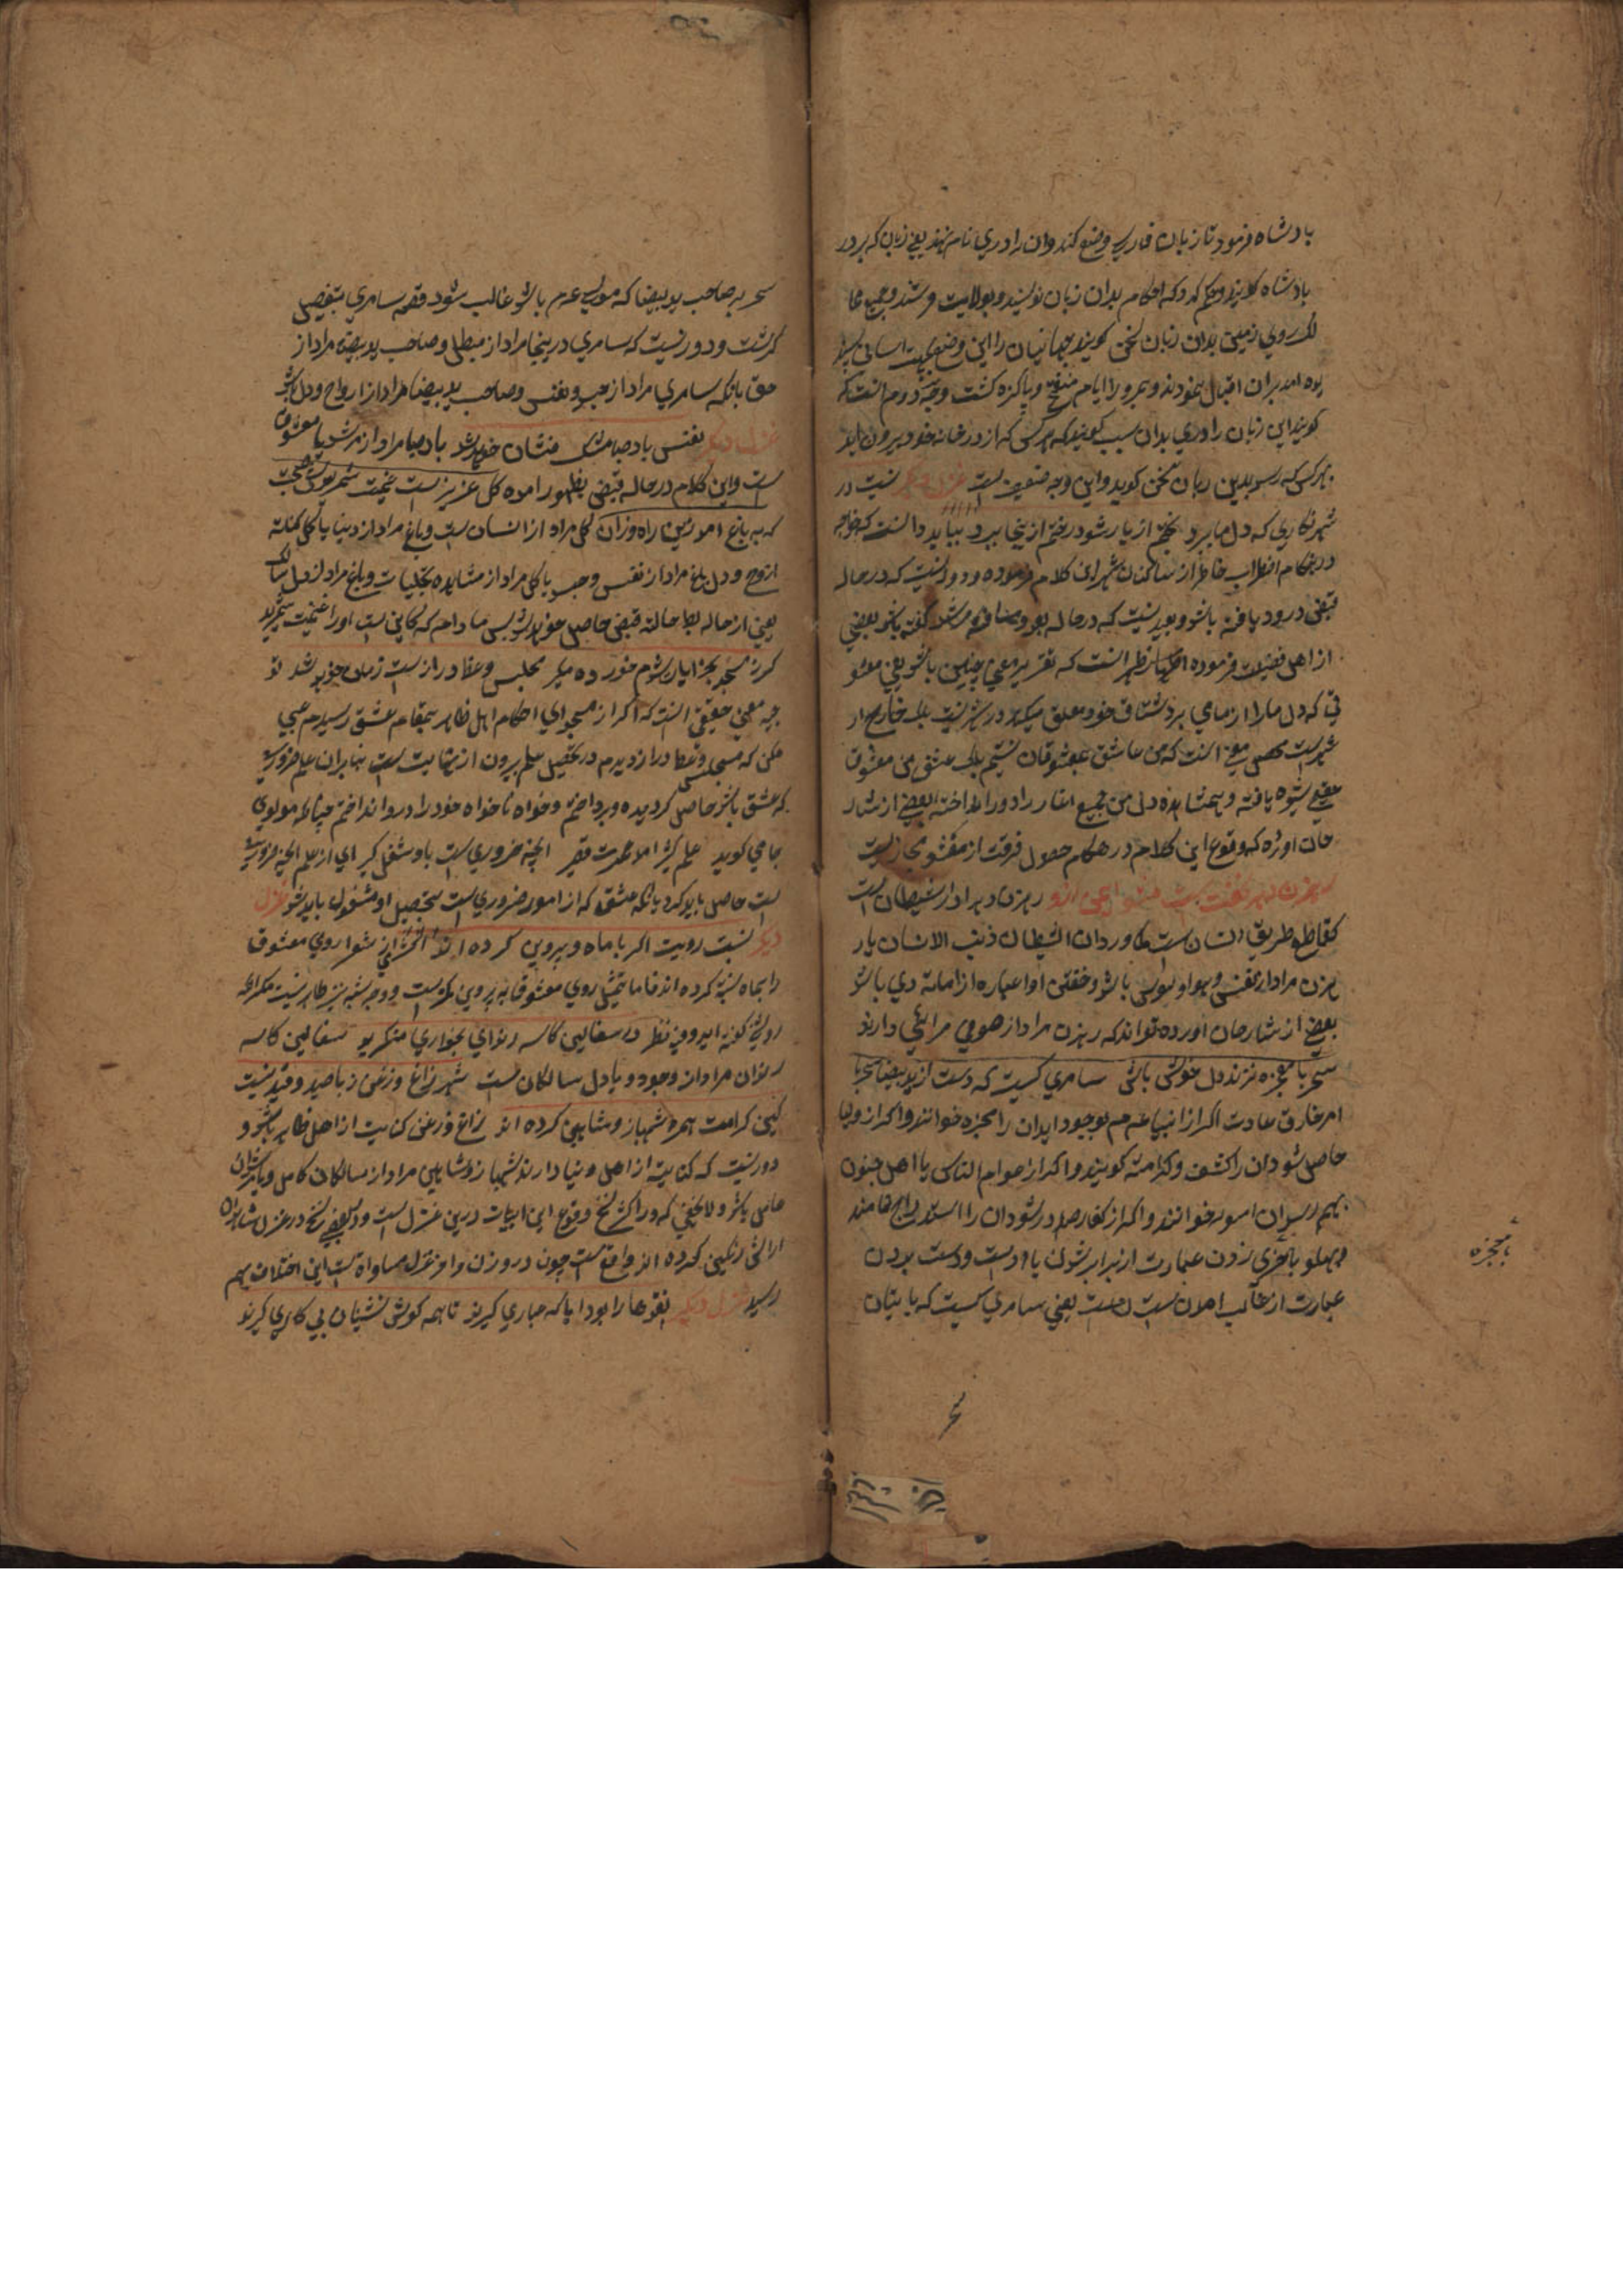 بادشاه فرمود تا زبان فارسی وضع کنند و آن را دری نام نهند یعنی زبان که بر در
بادشاه کویند و حکم کرد که احکام بدان زبان نویسند و بولایت فرستند و جمیع مما
لک روی زمین بدان زبان سخن کویند جهانیان را این وضع
بران اقبال نمودند و بمرور ایام منقح و پاکیزه کشت وجه دوم انست که
کویند این زبان را دری بدان سبب کویند که هر کس که از در خانه خود بیرون اید
بهر کس که رسد بدین زبان سخن کوید و این وجه ضعیف است غزل دیکر نیست در
شهر نکاری که دل ما ببرد بختم ار یار شود رختم ازینجا ببرد بباید دانست که خواجه
در هنکام اضطراب خاطر از ساکنان شهر این کلام فرموده و دور نیست که در حاله
قبض درود یافته باشد و بعید نیست که در حاله بعد و مسافرة مرشد کفته باشد بعضی
از اهل فضیلت فرموده انست که تقریر معنی چنین باشد یعنی معشو
قی که دل ما را از مای برد مشتاق خود معلق میکند در شهر نیست بلکه خارج از
شهر است معنی انست که من عاشق معشوقان نیستم بلکه عشق من معشوق
حقیقی شیوه یافته و بمشاهده دل من جمیع اغیار را دور انداخته بعضی از شار
حان اورده که وقوع این کلام در هنکام حصول فرقت از معشوق مجازیست
رهزن دهر نخفتست مشو ایمن ازو رهزن دهر مراد از شیطان است
که قاطع طریق انسان است کما ورد ان الشیطان ذئب الانسان یا ر
هزن مراد از نفس و هوا و هوس باشد و خفتن او عباره از اماتة وی باشد
بعضی از شارحان اورده تواند که رهزن مراد از صوفی مرائی دارند
سحر با معجزه نزند دل خوش باش سامری کیست که دست از ید بیضا ببرد
امر خارق عادت اکر از انبیا عم بوجود اید ان را معجزه خوانند و اکر از اولیا
حاصل شود ان را کشف و کرامة کویند و اکر از عوام الناس یا اهل جنون
بهم رسد ان خوانند و اکر از کفار صادر شود ان را استدراج نامند
و پهلو با چیزی زدن عبارت از برابر شدن با اوست و دست بردن
عبارت از غالب امدن است یعنی سامری کیست که با
بمعجزه
سحر
سحر بر صاحب ید بیضا که موسی عم باشد غالب شود قصه سامری بتفصیل
کذشت و دور نیست که سامری درینجا مراد از مبطل و صاحب ید بیضا مراد از
حق بانکه سامری مراد از جسد و نفس و صاحب ید بیضا مراد از ارواح و دل باشد
غزل دیکر نفس باد صبا مشک فشان خواهد شد باد صبا مراد از مرشد یا معشوق
است و این کلام در حاله قبض بظهور امده کل عزیز است غنیمت شمریدش صحبت
که بباغ امد ازین راه و زان کل مراد از انسان است و باغ مراد از دنیا یا کل کنایة
از روح و دل باغ مراد از نفس و جسد یا کل مراد از مشاهده تجلیات و باغ مراد از دل سالک
یعنی از حاله بسط حالة قبض حاصل خواهد شد پس مادام که کل باقی است او را غنیمت شمرید
کر ز مسجد بخرابات شدم خورده مکیر مجلس وعظ دراز است و زمان خواهد شد تو
جیه معنی حقیقی انست که اکر از مسجد ای احکام اهل ظاهر بمقام عشق رسیدم عیبی
مکن که مجلس وعظ دراز دیدم در تحصیل علم بیرون از نهایت است بنابران علم ضروری
که عشق باشد حاصل کردیده و پرداختم و خواه ناخواه خود را درو انداختم چنانکه مولوی
جامی کوید علم کثیر امد و عمرت قصیر انچه ضروری است باو شغل کیر ای از علم انچه ضروری
است حاصل باید کرد بانکه عشق که از امور ضروری است بتحصیل او مشغول باید شد غزل
دیکر نسبت رویت اکر با ماه و پروین کرده اند اکثری از شعرا روی معشوق
را بماه نسبة کرده اند فاما تمثیل روی معشوق به پروین کم است و وجه شبه نیز ظاهر نیست
در سفالین کاسه رندان بخواری منکرید سفالین کاسه
رندان مراد از وجود و یا دل سالکان است شهپر زاغ و زغن زیبای صید و قید نیست
کین کرامت همره شهباز و شاهین کرده اند زاغ و زغن کنایت از اهل ظاهر باشد و
دور نیست که کنایة از اهل دنیا دارند شهباز و شاهین مراد از سالکان کامل و یا مرشدان
کامل باشد و لا یخفی که در اکثر نسخ وقوع این ابیات درین غزل است و در بعضی نسخ در غزل
کرده اند واقع است چون در وزن و امر غزل مساواة است این اختلاف بهم
رسید غزل دیکر نقدها را بود ایا که عیاری کیرند تا همه کوشه نشینان پی کاری کیرند